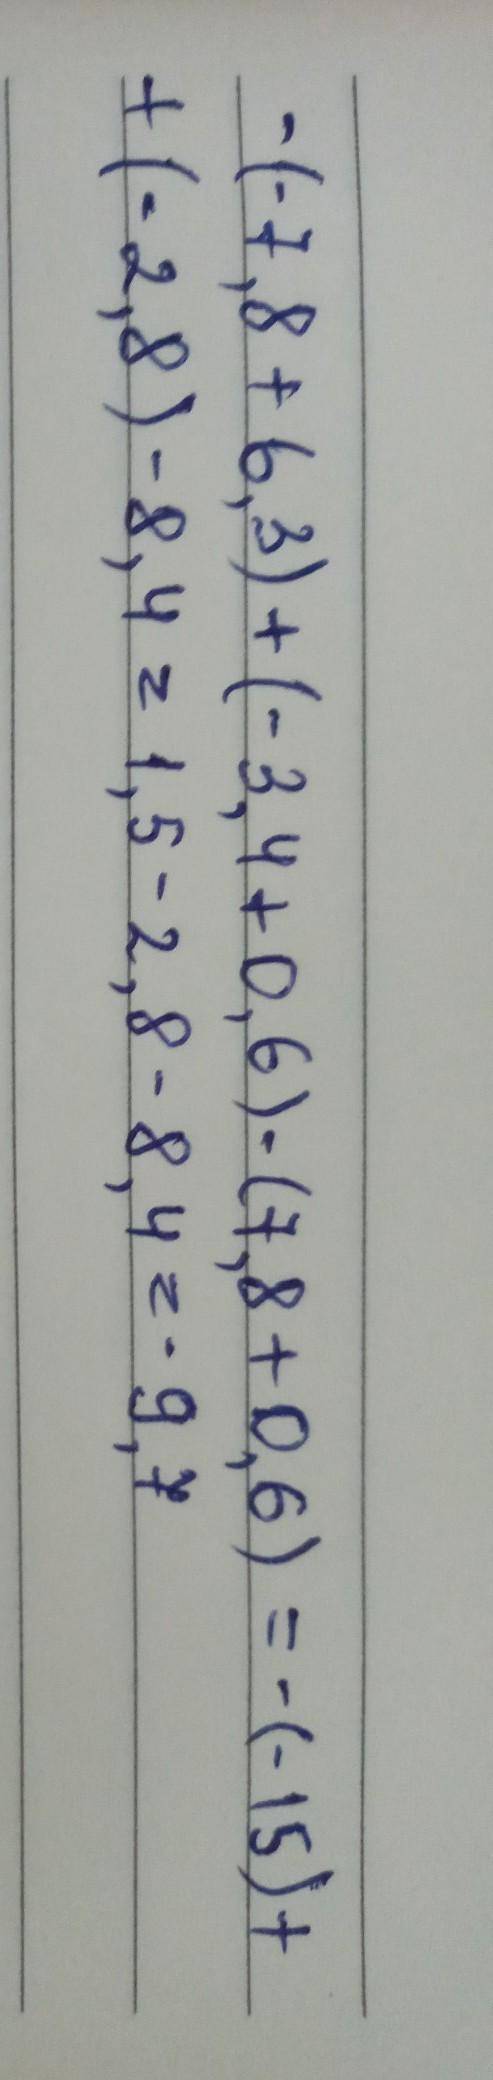 -(-7,8+6,3)+(-3,4+0,6)-(7,8+0,6) = -(-15)+
+(-2,8)-8,4=1,5-2,8-8,4=-9,7